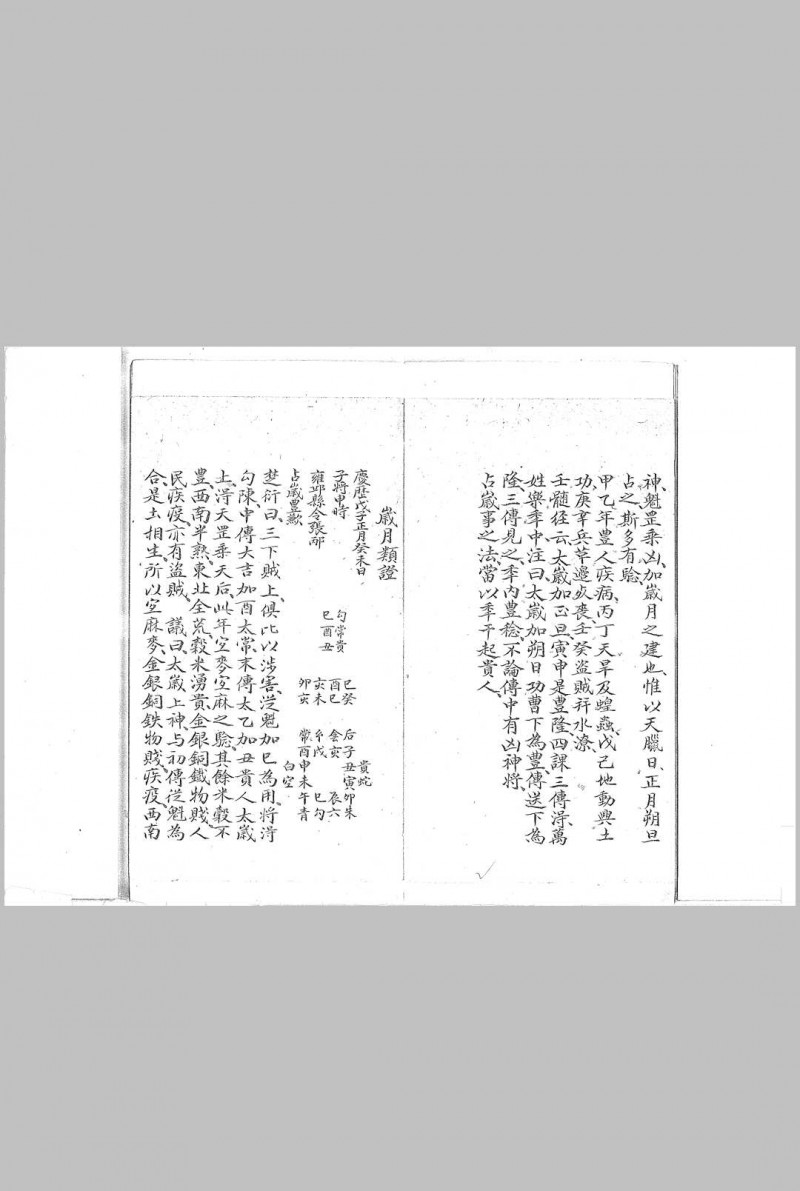 神、魁罡乘凶、加歲月之建也、惟以天臘日、正月朔旦
占之、斯多有驗、
甲乙年豐人疾病、丙丁天旱及蝗蟲、戊己地動興土
功、庚辛兵革邊戍喪、壬癸盜賊幷水潦、
壬髓經云、太歲加正旦、寅申是豐隆、四課三傳淂、萬
姓樂季中、注曰、太歲加朔日、功曹下為豐、傳送下為
隆、三傳見之、季內豐稔、不論傳中有凶神將、
占歲事之法、當以季干起貴人、
歲月類證
慶歷戊子正月癸未日
子將申時
雍邱縣令張
占歲豐歉
勾常貴
巳酉丑
巳癸
酉巳
亥未
卯亥
貴蛇
后子丑寅卯朱
亥辰六
戌巳勾
常酉申未午青
白空
楚衍曰、三下賊上、俱比以涉害、從魁加巳為用、將淂
勾陳、中傳大吉加酉太常、末傳太乙加丑貴人、太歲
上淂天罡乘天后、此年宜麥宜麻之驗、其餘米穀不
豐、西南半熟、東北全荒、穀米湧貴、金銀銅鐵物賤、人
民疾疫、亦有盜賊、議曰、太歲上神、与初傳從魁為
合、是土相生、所以宜麻麥、金銀銅鉄物賤、疾疫、西南